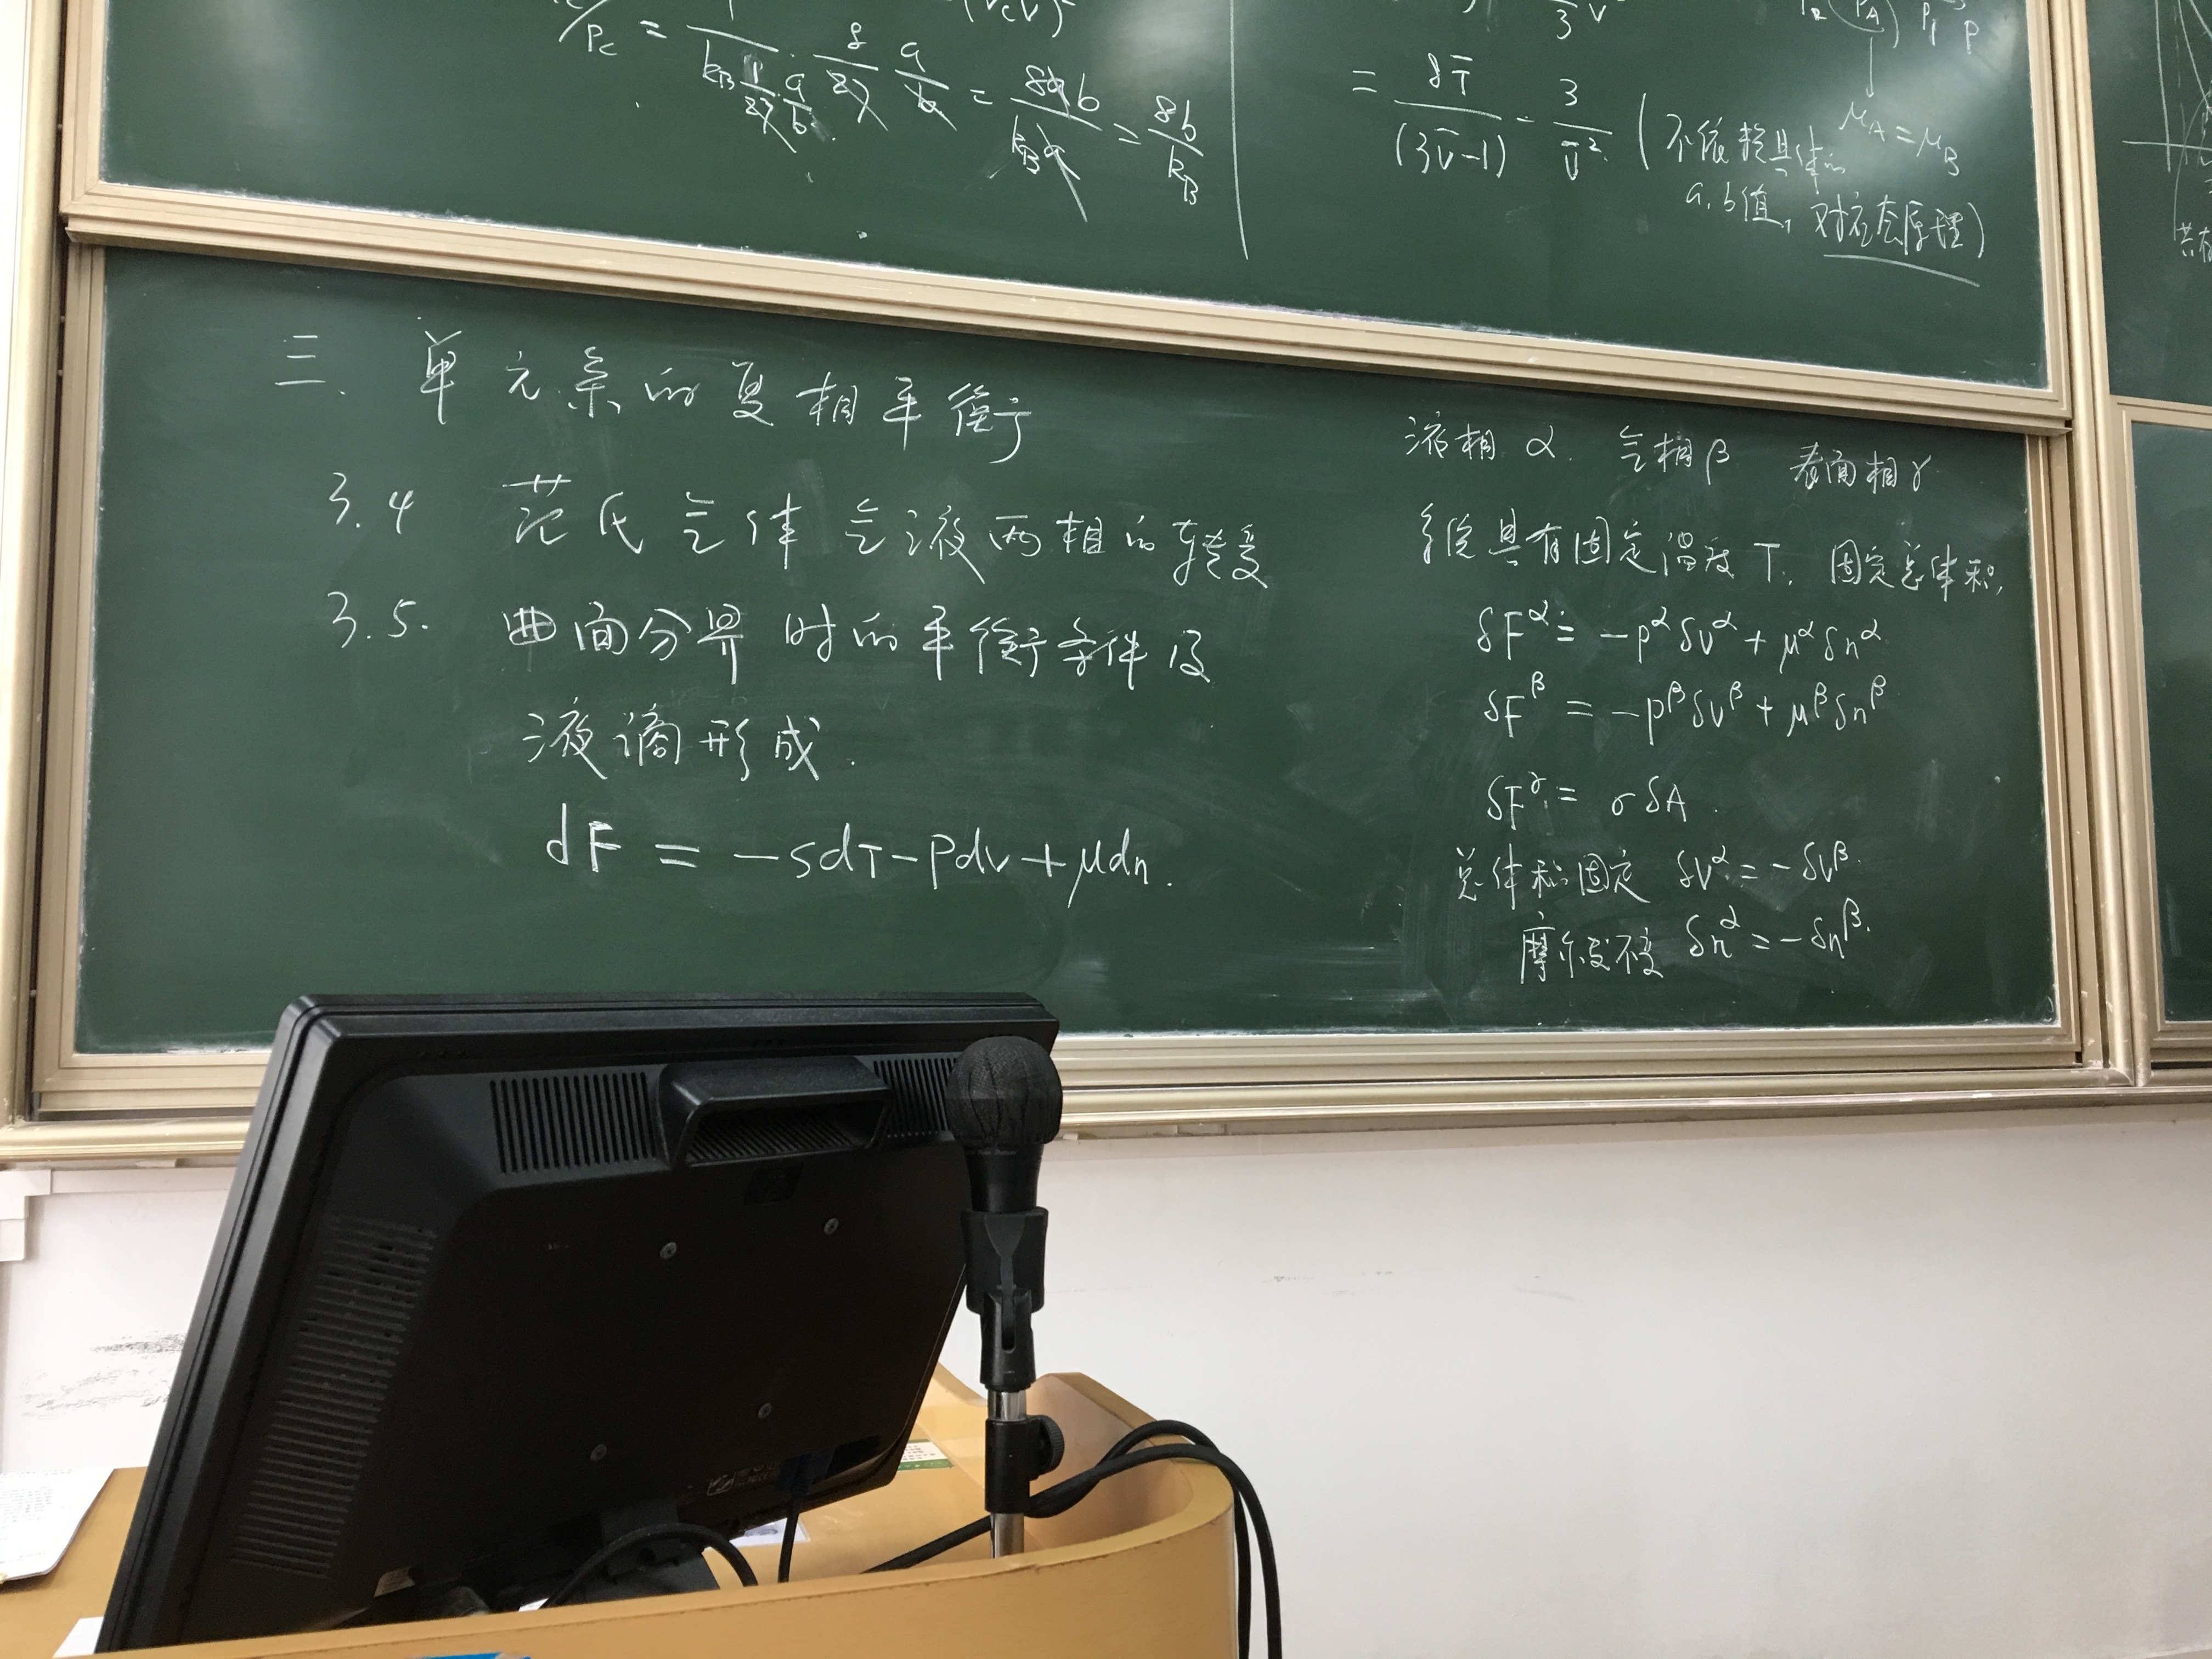 = 8b / k_B
= 8T̄ / (3v̄-1) - 3 / v̄² (不依赖具体的
a,b值, 对应态原理)
μ_A = μ_B
三. 单元系的复相平衡
3.4 范氏气体气液两相的转变
3.5. 曲面分界时的平衡条件及
液滴形成.
dF = -SdT-Pdv+μdn.
液相α. 气相β 表面相γ
系统具有固定温度T. 固定总体积,
δF^α = -p^α δv^α + μ^α δn^α.
δF^β = -p^β δv^β + μ^β δn^β
δF^γ = σδA.
总体积固定 δv^α = -δv^β.
摩尔数不变 δn^α = -δn^β.